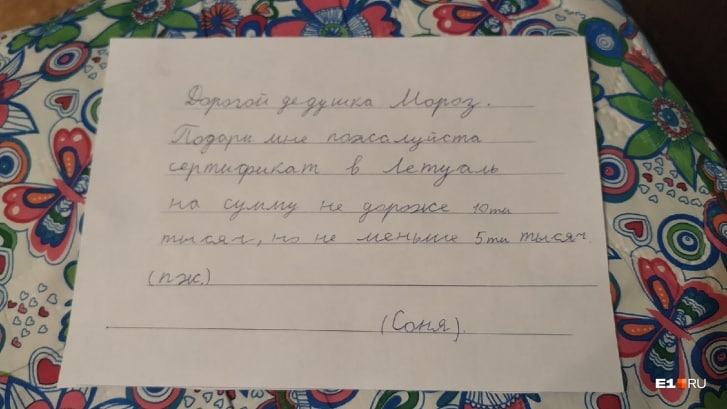 Дорогой дедушка Мороз.
Подари мне пожалуйста
сертификат в Летуаль
на сумму не дороже 10ти
тысяч, но не меньше 5ти тысяч.
(пж.)
(Соня).
E1.RU